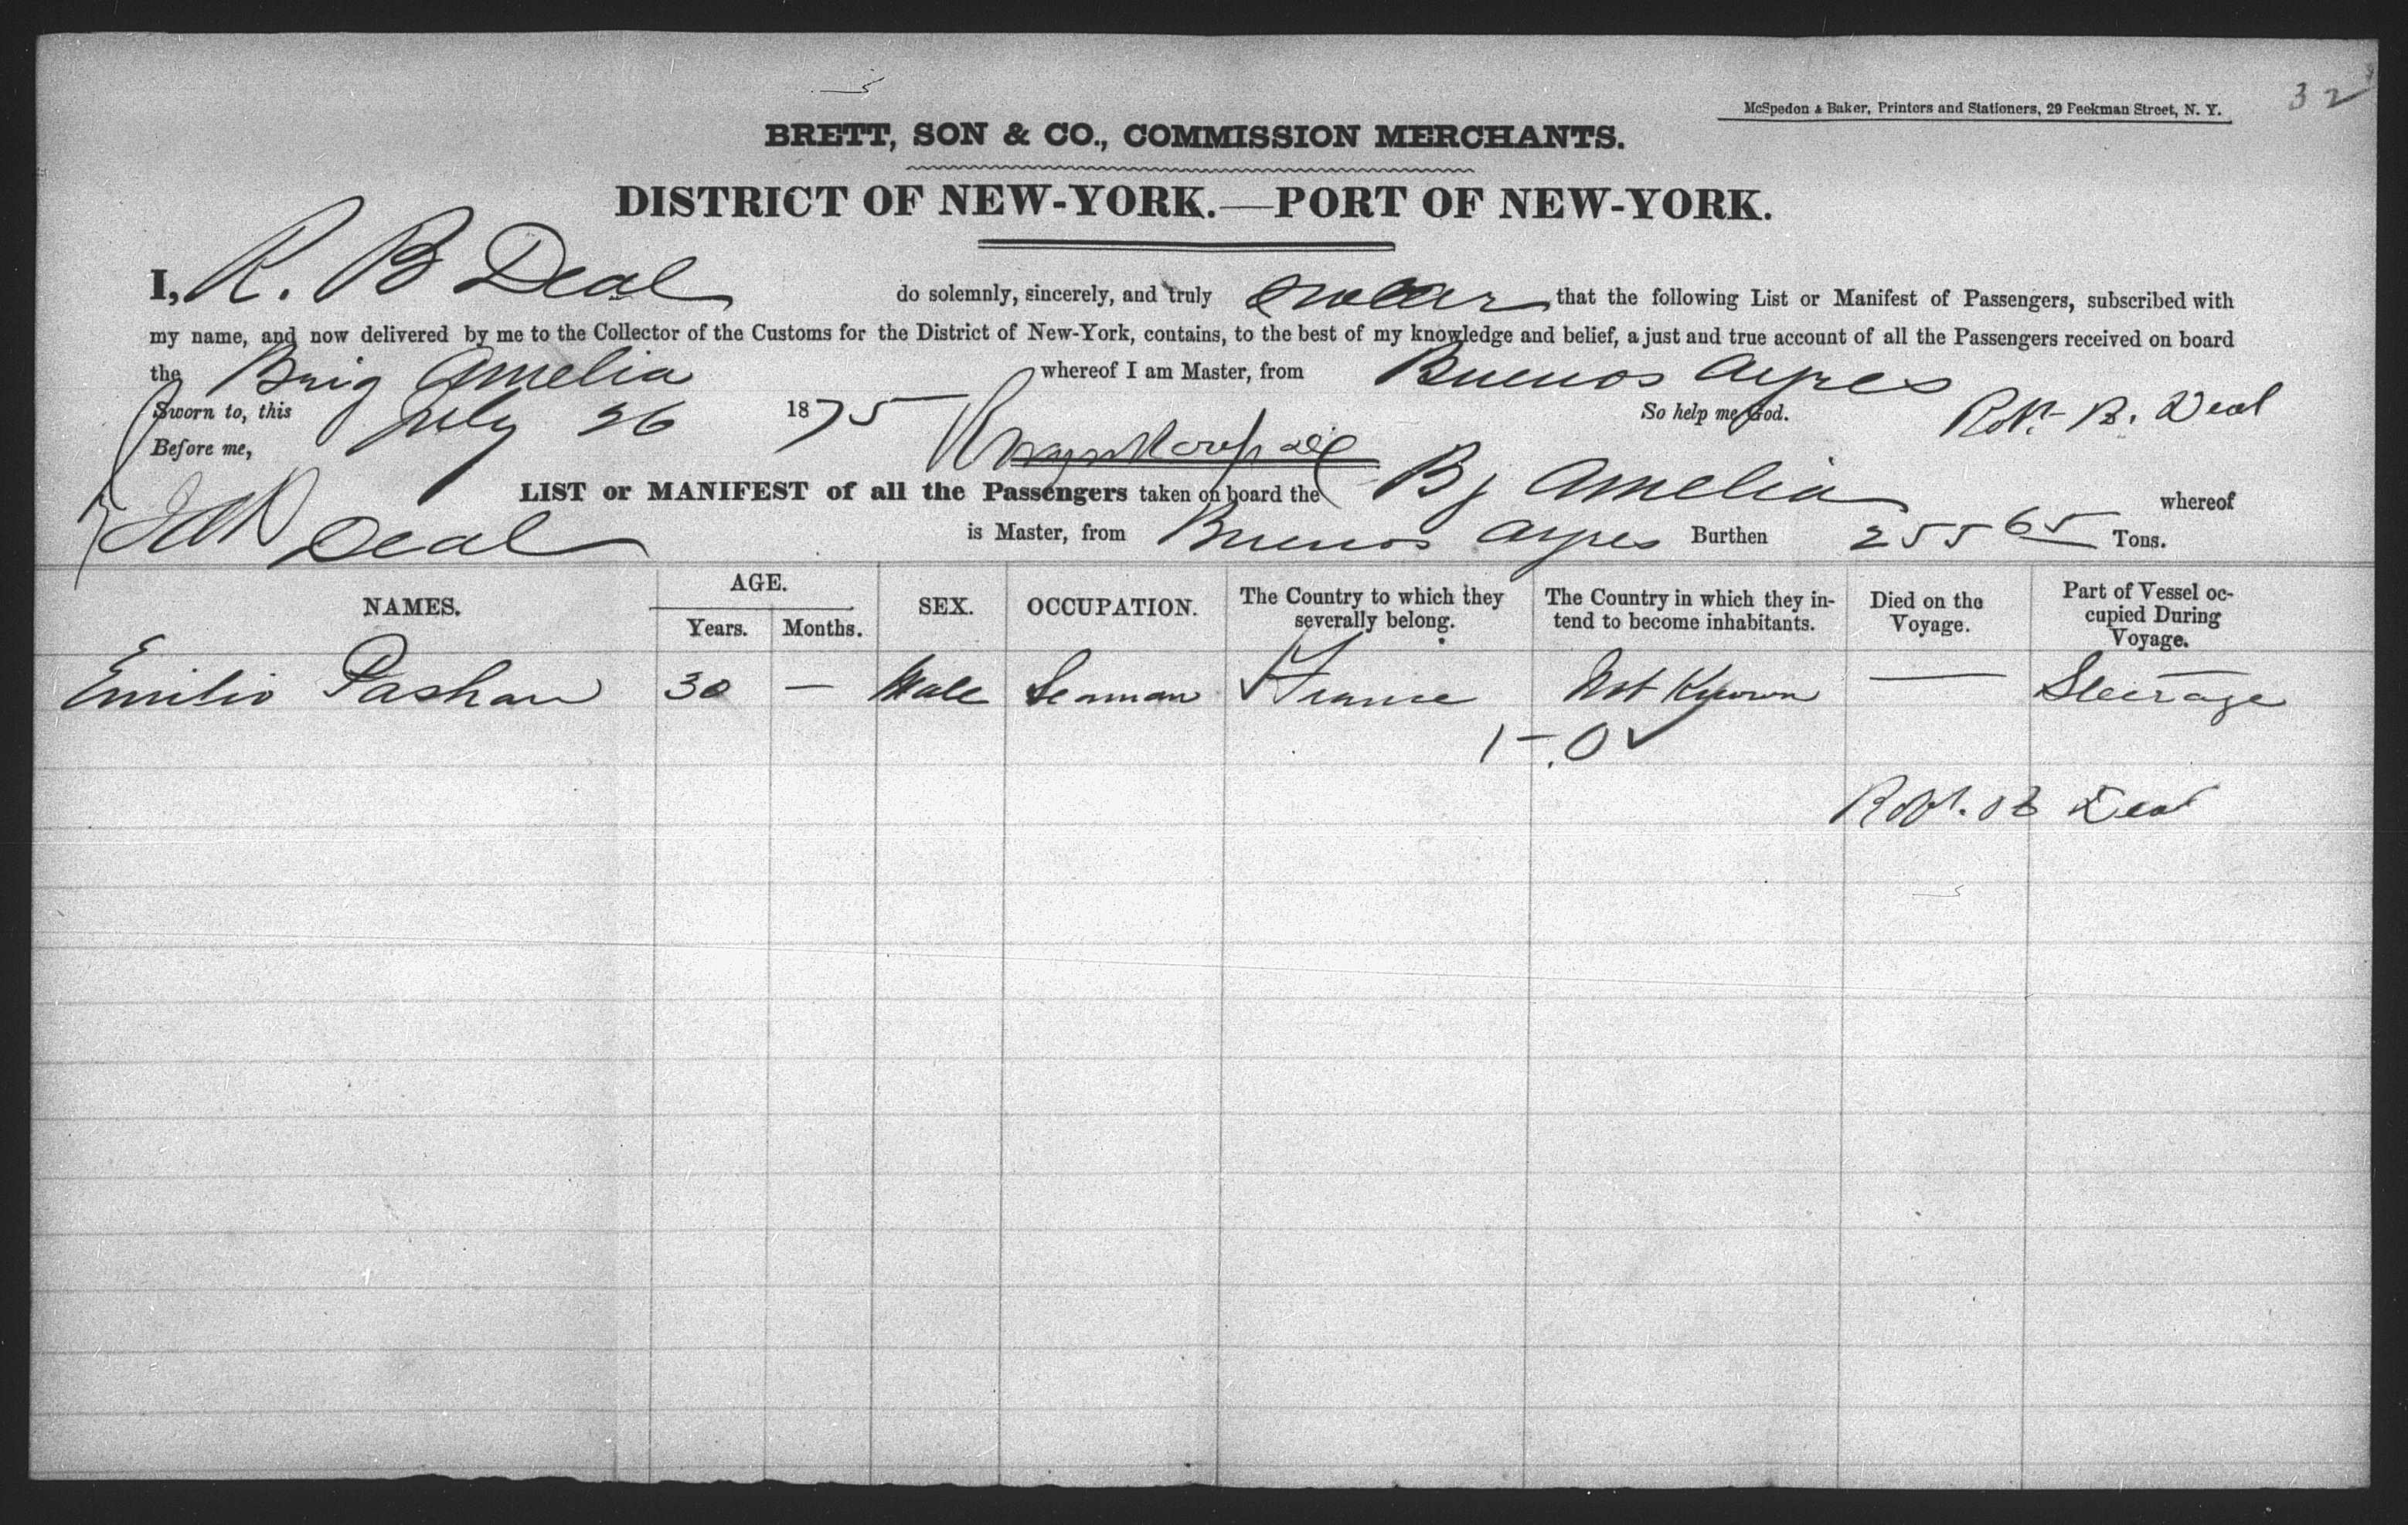 32
McSpedon & Baker, Printers and Stationers, 29 Beekman Street, N. Y.
BRETT, SON & CO., COMMISSION MERCHANTS.
DISTRICT OF NEW-YORK.—PORT OF NEW-YORK.
I, R. B Deal do solemnly, sincerely, and truly swear that the following List or Manifest of Passengers, subscribed with
my name, and now delivered by me to the Collector of the Customs for the District of New-York, contains, to the best of my knowledge and belief, a just and true account of all the Passengers received on board
the Brig Amelia whereof I am Master, from Buenos Ayres
Sworn to, this July 26 1875 So help me God. Robt. B. Deal
Before me,
LIST or MANIFEST of all the Passengers taken on board the Bg Amelia whereof
Deal is Master, from Buenos Ayres Burthen 255 65 Tons.
NAMES. AGE. SEX. OCCUPATION. The Country to which they severally belong. The Country in which they intend to become inhabitants. Died on the Voyage. Part of Vessel occupied During Voyage.
Years. Months.
Emilio Pashau 30 — Male Seaman France Not Known — Steerage
1-0
Robt. B Deal